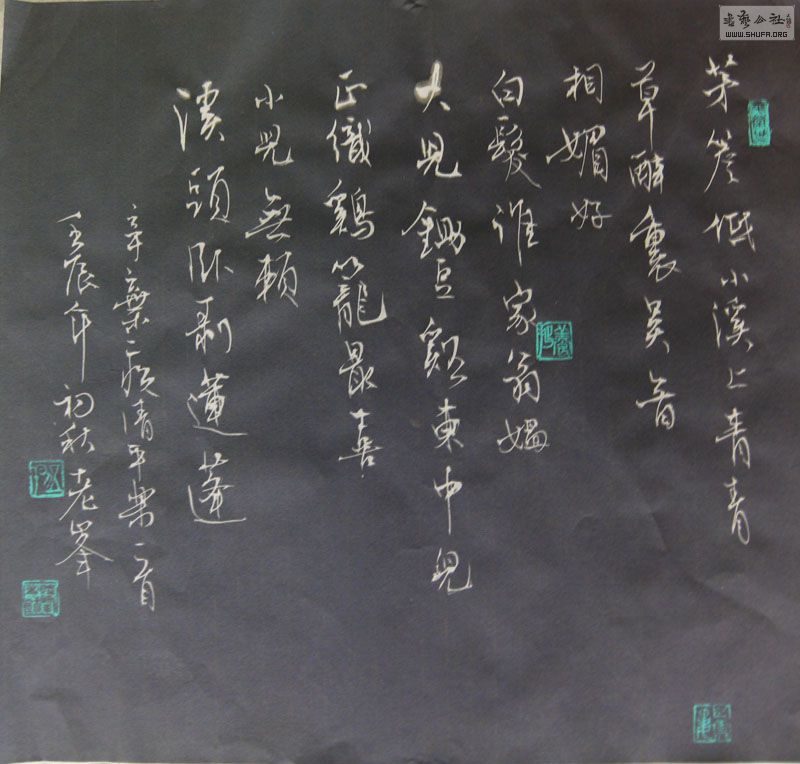 茅簷低小溪上青青
草醉裏吳音
相媚好
白髮誰家翁媼
大兒鋤豆谿東中兒
正織鷄籠最喜
小兒無賴
溪頭卧剥蓮蓬
辛棄疾清平樂一首
壬辰年初秋老峯
書藝公社
WWW.SHUFA.ORG